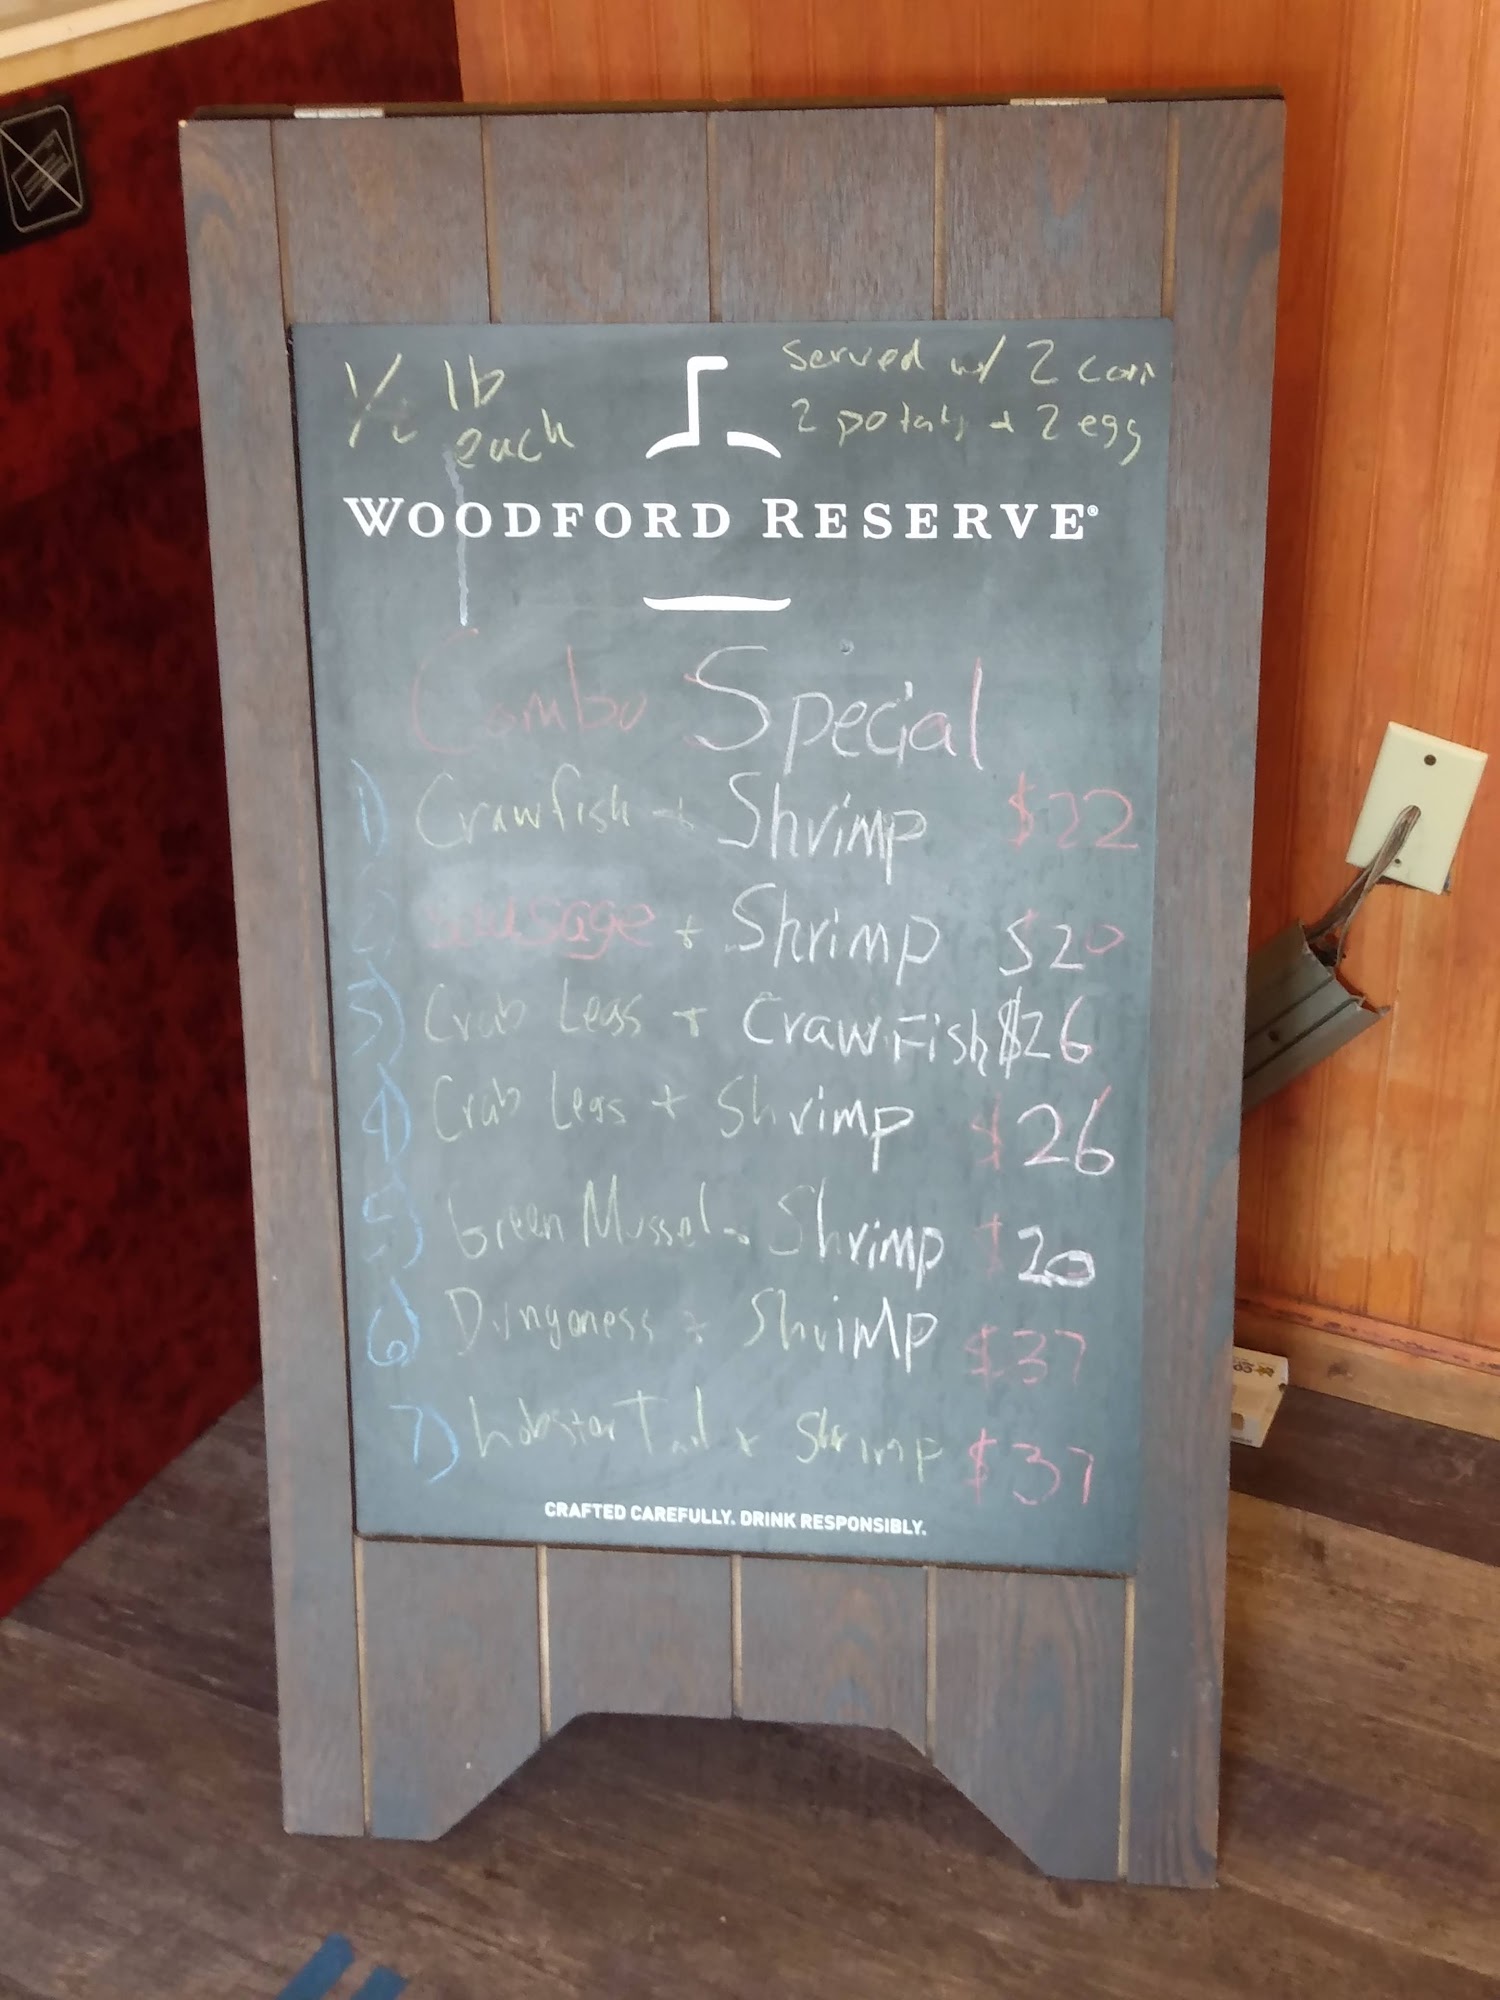 1/2 lb
each
served w/ 2 corn
2 potato + 2 egg
WOODFORD RESERVE®
Combo Special
1) Crawfish + Shrimp $22
2) Sausage + Shrimp $20
3) Crab Legs + CrawFish $26
4) Crab Legs + Shrimp $26
5) Green Mussel + Shrimp $20
6) Dungeness + ShriMp $37
7) Lobster Tail + Shrimp $37
CRAFTED CAREFULLY. DRINK RESPONSIBLY.